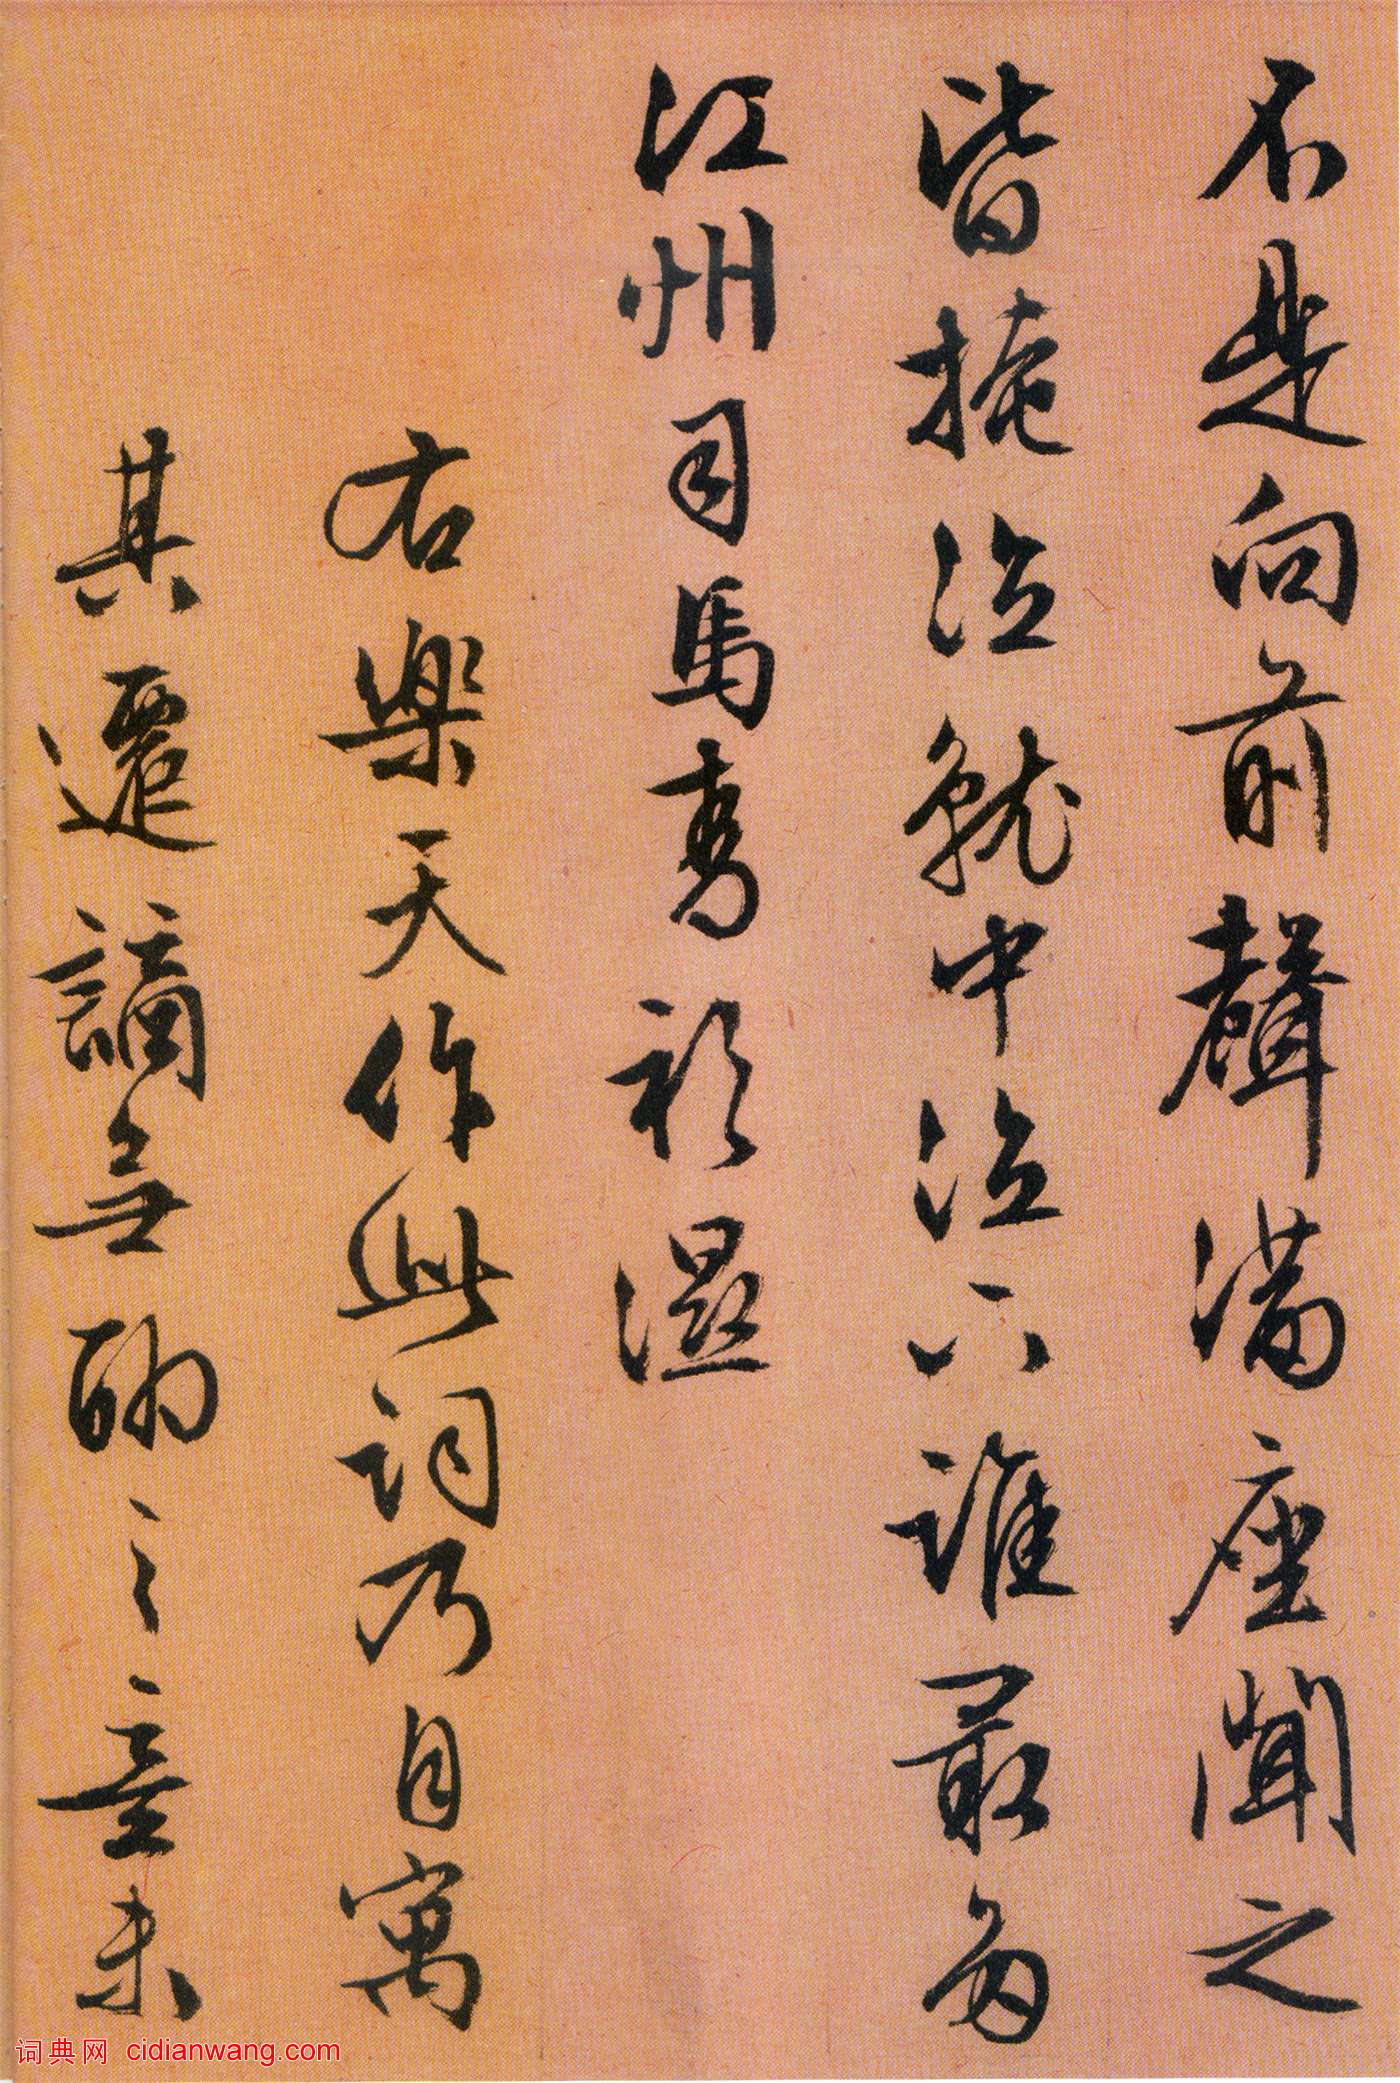 不是向前聲滿座聞之
皆掩泣就中泣下誰最多
江州司馬青衫濕
右樂天作此詞乃自寓
其遷謫無聊之意未
词典网 cidianwang.com